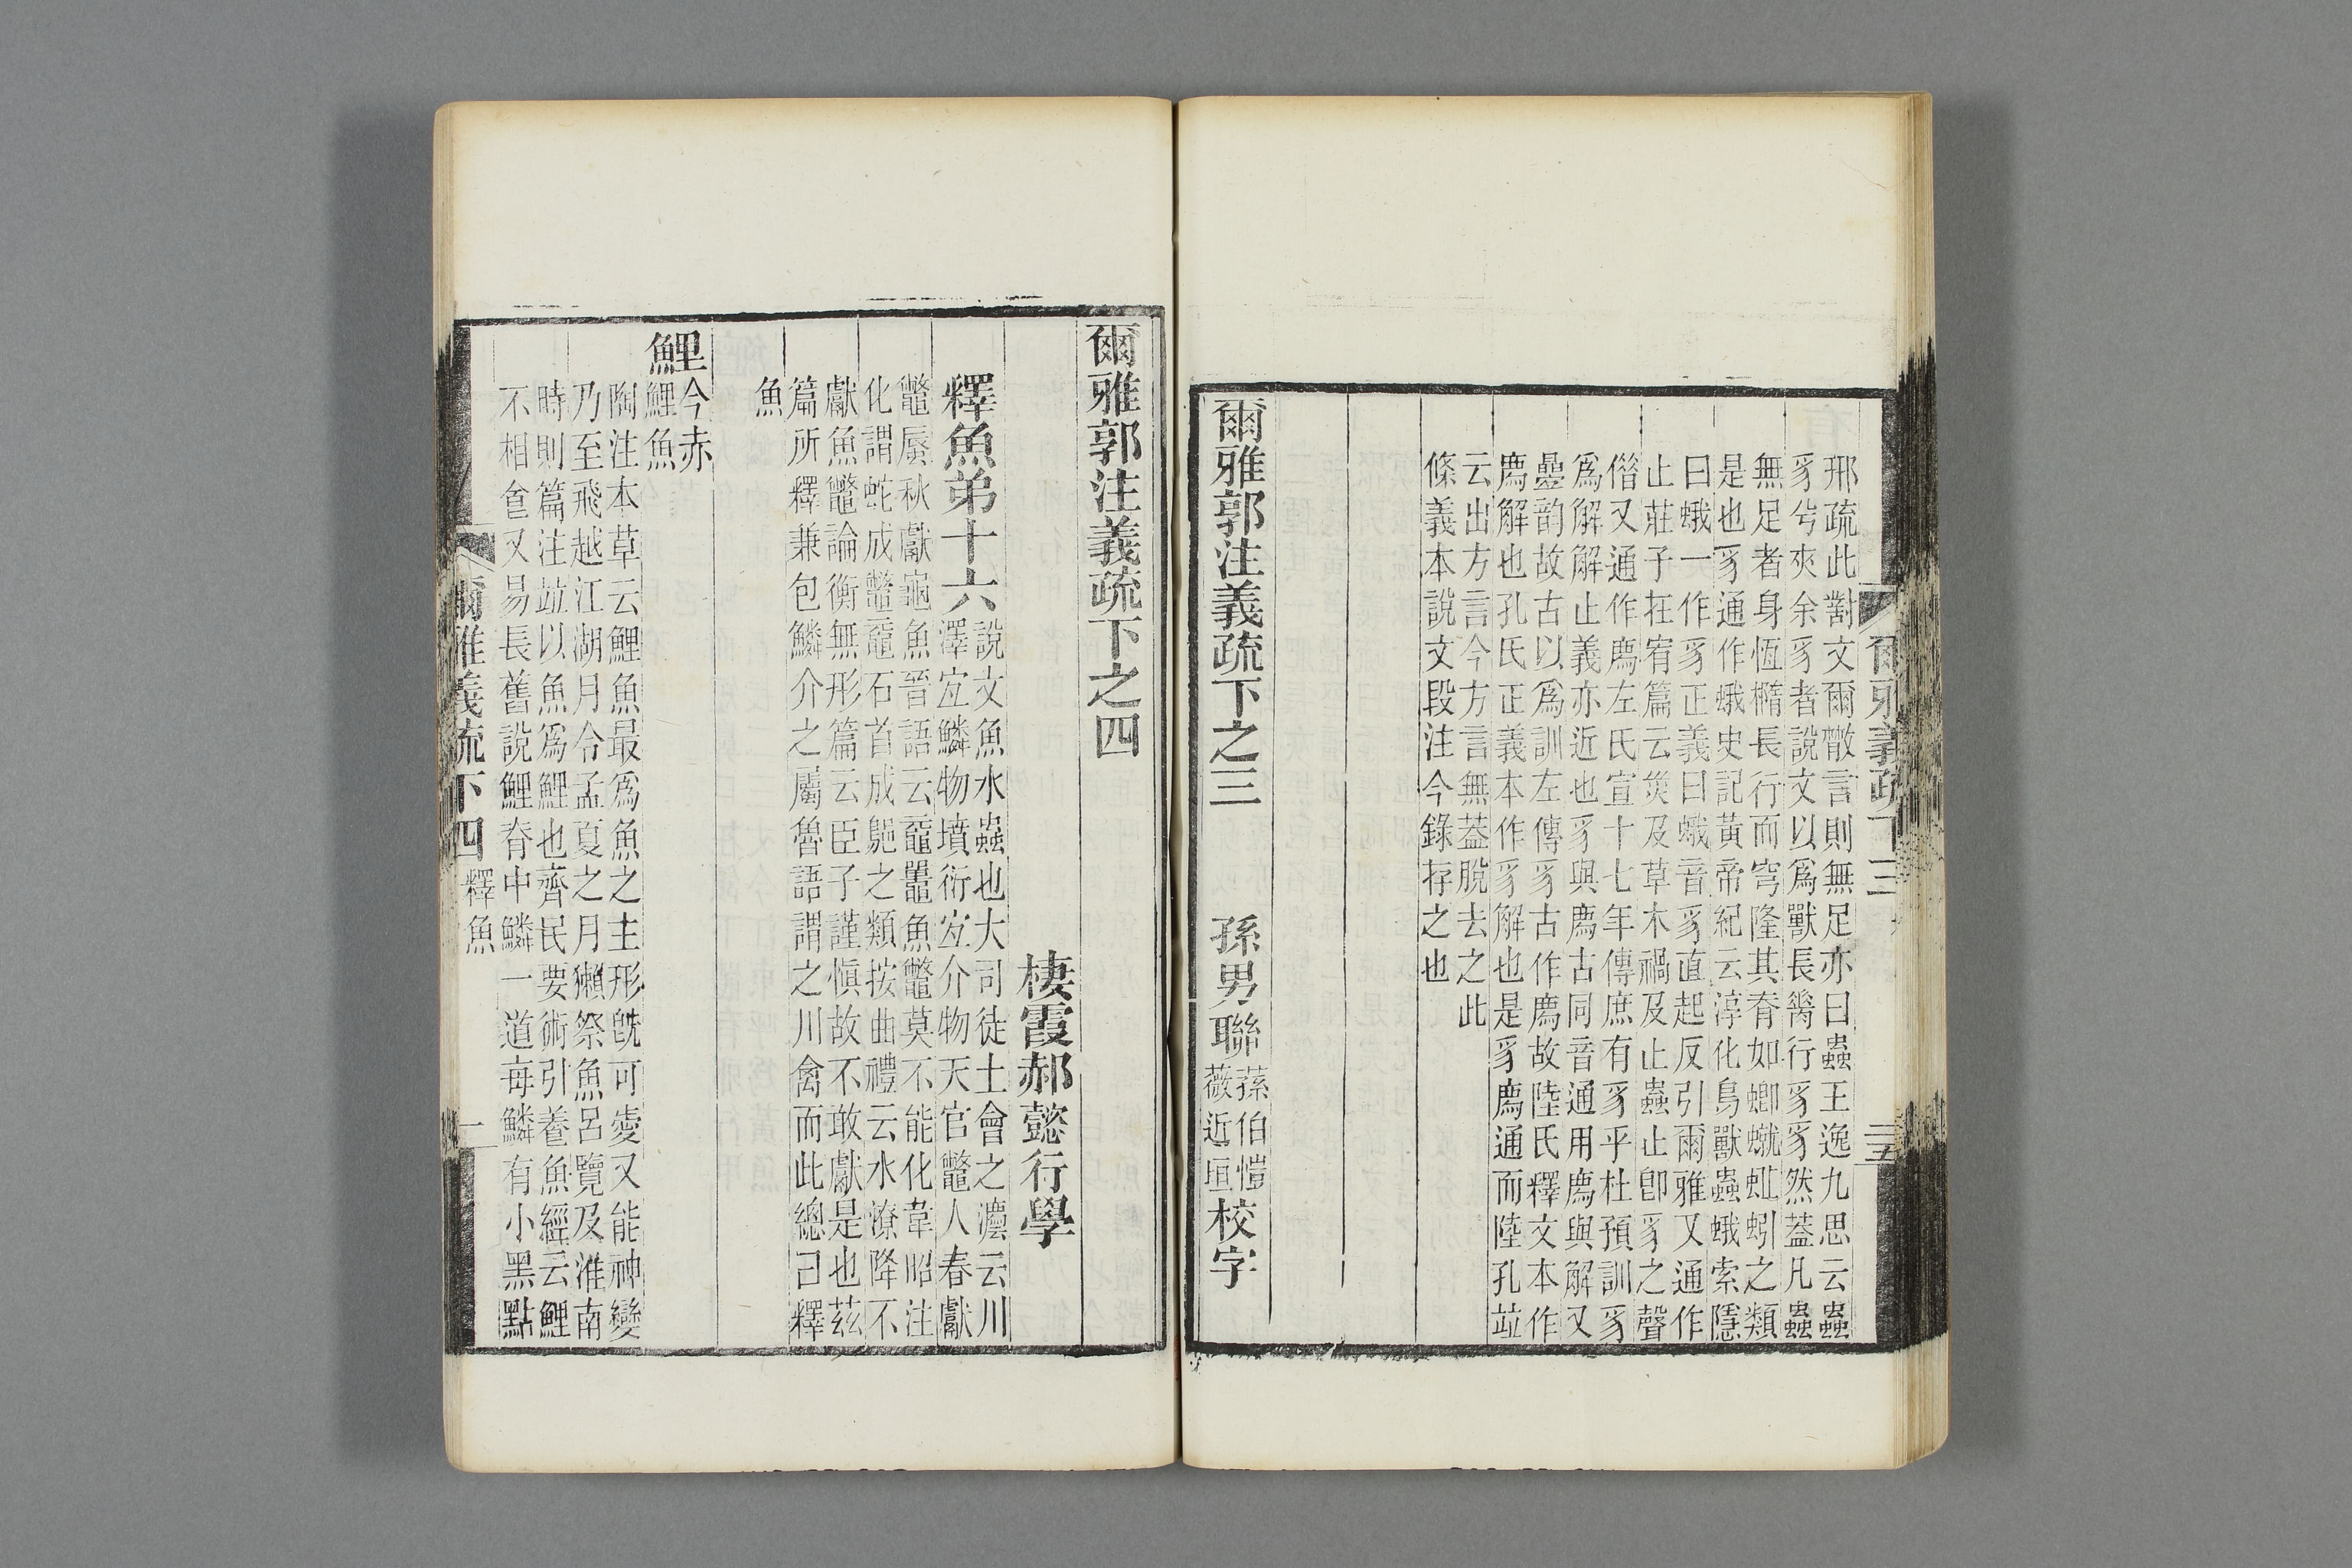 邢疏此對文爾散言則無足亦曰蟲王逸九思云蟲
豸兮夾余豸者說文以爲獸長脊行豸豸然葢凡蟲
無足者身恆橢長行而穹隆其脊如蝍蠍蚯蚓之類
是也豸通作蛾史記黃帝紀云淳化鳥獸蟲蛾索隱
曰蛾一作豸正義曰蛾音豸直起反引爾雅又通作
止莊子在宥篇云災及草木禍及止蟲止卽豸之聲
偺又通作廌左氏宣十七年傳庶有豸乎杜預訓豸
爲解解止義亦近也豸與廌古同音通用廌與解又
曡韵故古以爲訓左傳豸古作廌故陸氏釋文本作
廌解也孔氏正義本作豸解也是豸廌通而陸孔竝
云出方言今方言無葢脫去之此
條義本說文段注今錄存之也
爾雅郭注義疏下之三 孫男聯蓀伯愷薇近垣校字
爾雅義疏下三
三五
爾雅郭注義疏下之四
棲霞郝懿行學
釋魚弟十六說文魚水蟲也大司徒土會之灋云川
澤宐鱗物墳衍宐介物天官鼈人春獻
鼈蜃秋獻龜魚晉語云黿鼉魚鼈莫不能化韋昭注
化謂蛇成鼈黿石首成𪃟之類按曲禮云水潦降不
獻魚鼈論衡無形篇云臣子謹愼故不敢獻是也茲
篇所釋兼包鱗介之屬魯語謂之川禽而此總曰釋
魚
鯉今赤
鯉魚
陶注本草云鯉魚最爲魚之主形旣可愛又能神變
乃至飛越江湖月令孟夏之月獺祭魚呂覽及淮南
時則篇注竝以魚爲鯉也齊民要術引養魚經云鯉
不相食又易長舊說鯉脊中鱗一道每鱗有小黑點
爾雅義疏下四 釋魚
一